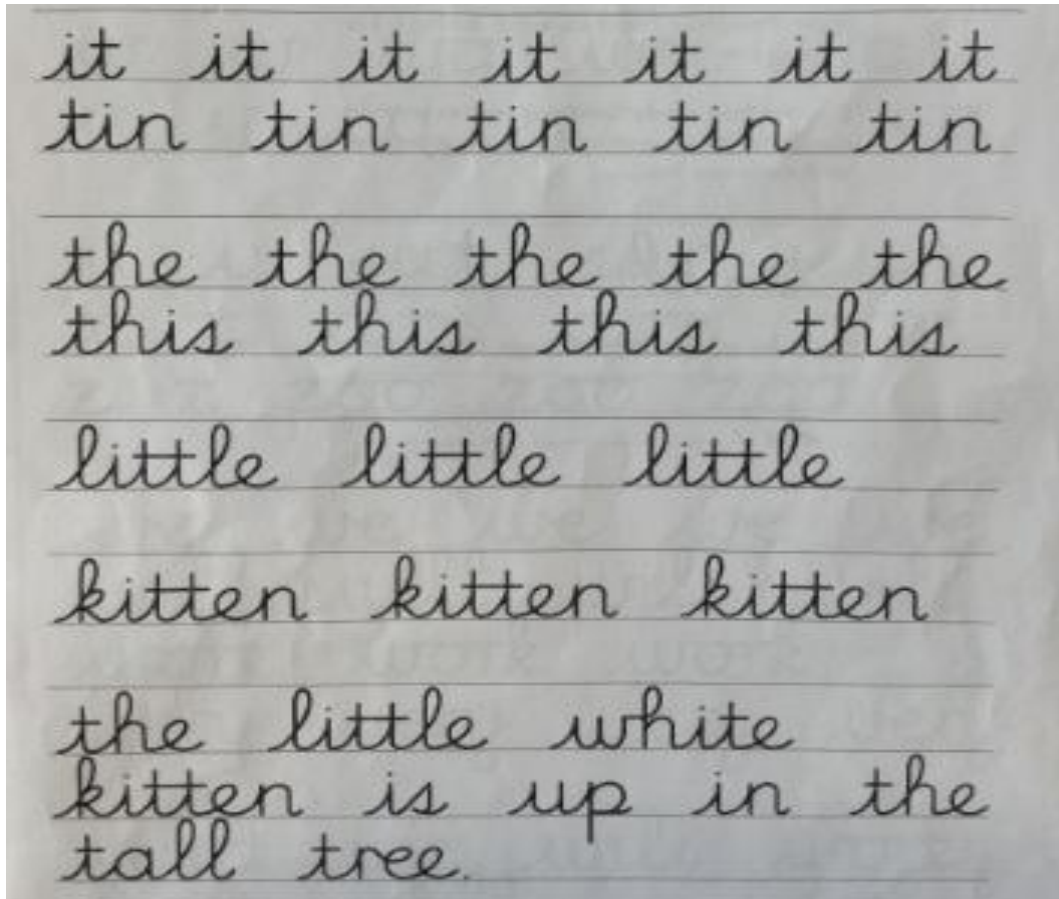 it it it it it it it
tin tin tin tin tin
the the the the the
this this this this
little little little
kitten kitten kitten
the little white
kitten is up in the
tall tree.